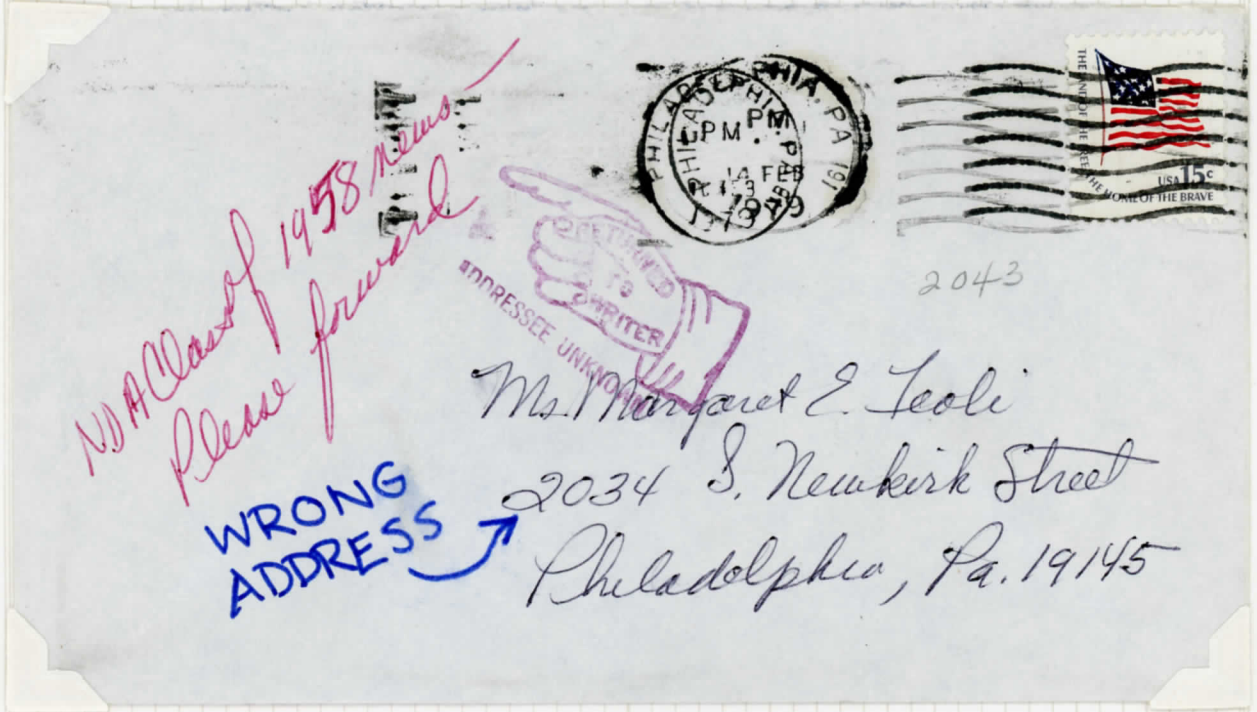 NDA Class of 1958 news—
Please forward
WRONG
ADDRESS
PHILADELPHIA, PA 191
PHILADELPHIA, PA
PM
PM
14 FEB
1979
THE LAND OF THE FREE THE HOME OF THE BRAVE
USA 15c
2043
RETURNED
TO
WRITER
ADDRESSEE UNKNOWN
Ms. Margaret E. Teoli
2034 S. Newkirk Street
Philadelphia, Pa. 19145